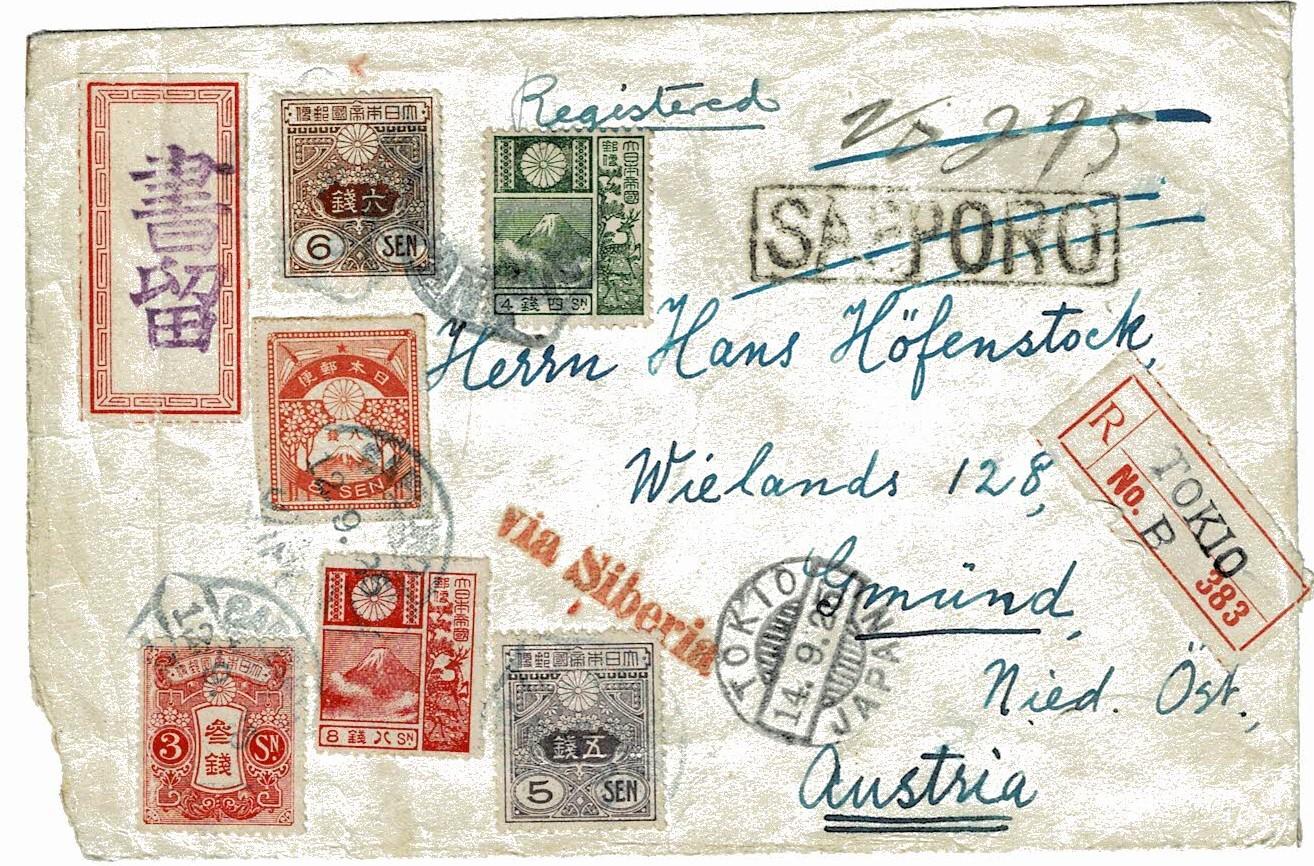 Registered
No 295
SAPPORO
書留
大日本帝國郵便
六錢
6 SEN
大日本帝國郵便
4 錢四 SN
日本郵便
八錢
8 SEN
Herrn Hans Höfenstock,
Wielands 128,
Gmünd,
Nied. Öst.,
Austria
via Siberia
R
TOKIO
No. B
383
TOKIO
14.9.26
JAPAN
大日本帝國郵便
8 錢八 SN
大日本帝國郵便
3 SN.
叁錢
大日本帝國郵便
五錢
5 SEN